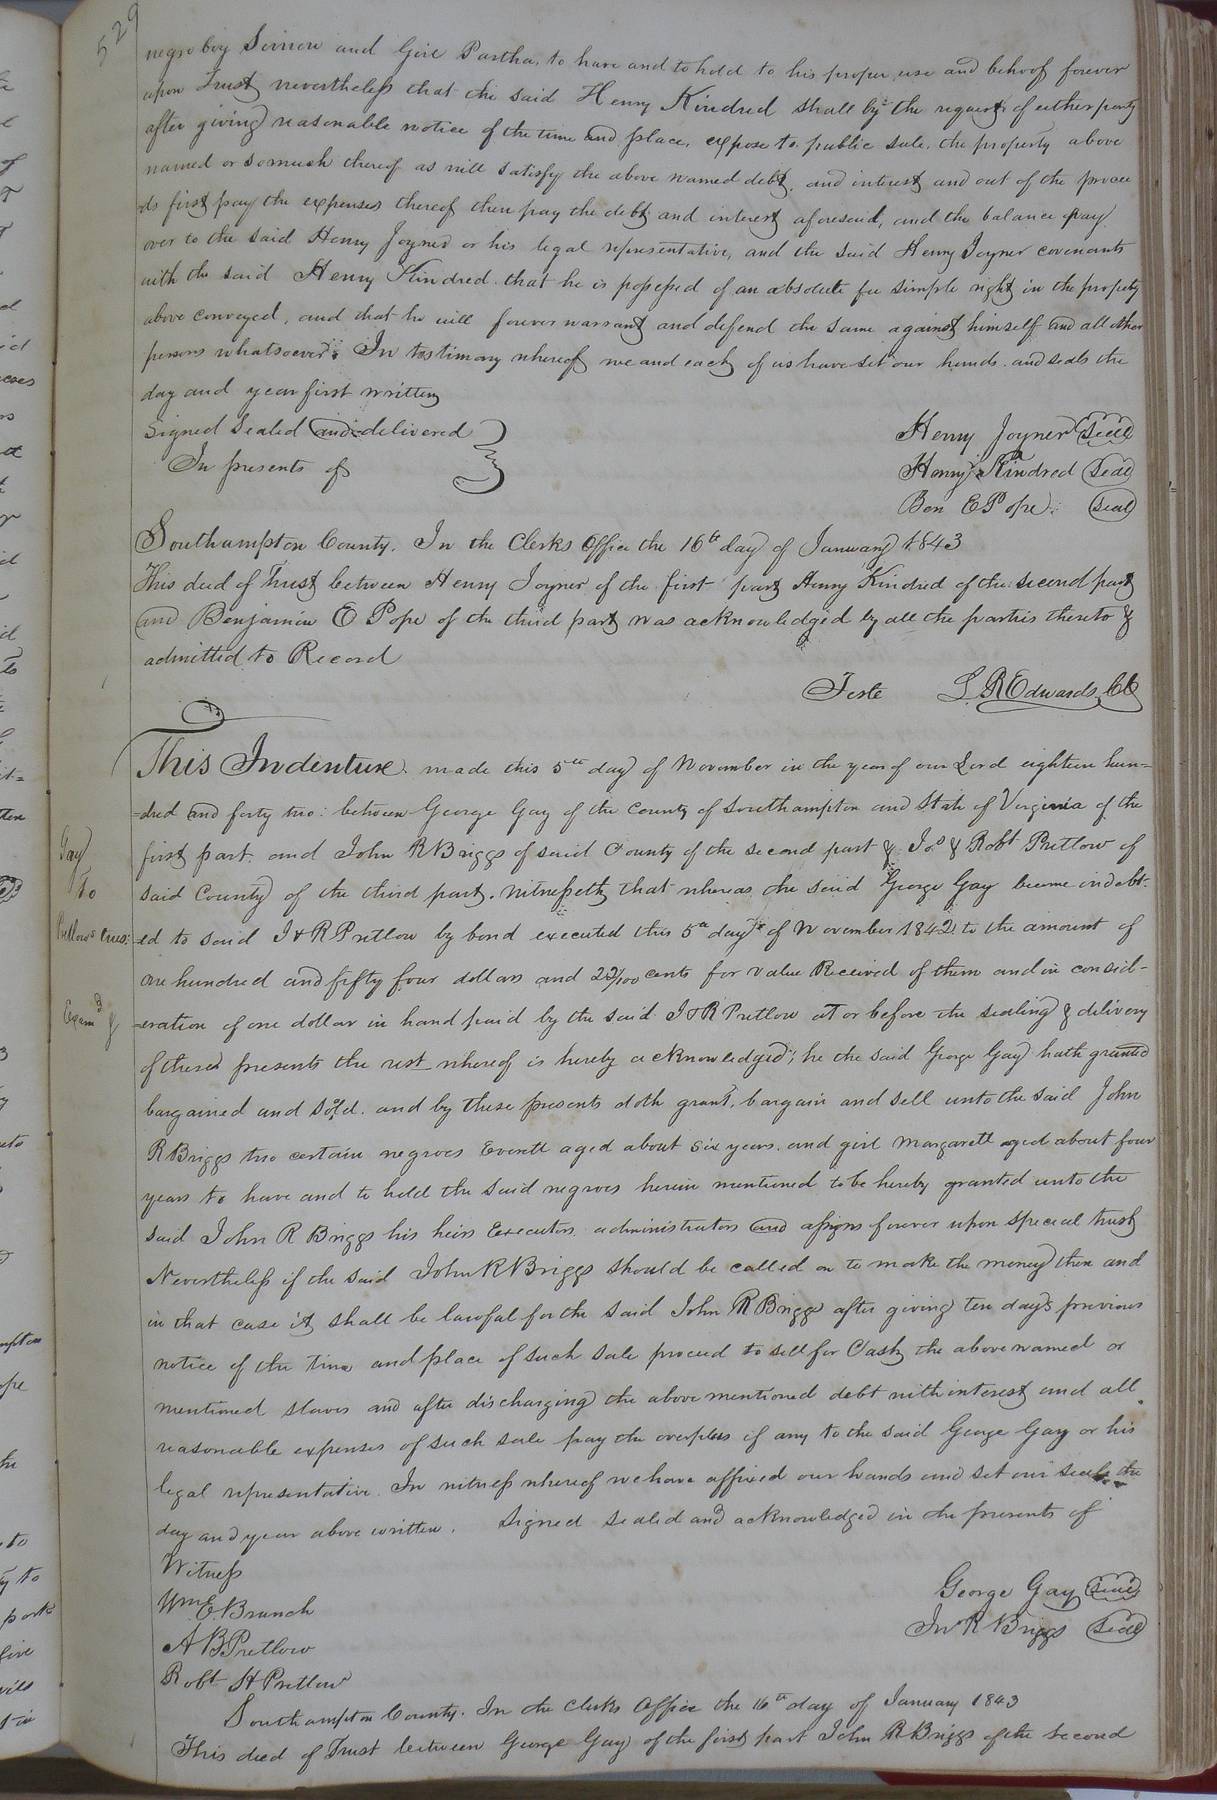 529
negro boy and Girl Partha, to have and to hold to his proper use and behoof forever
upon Trust nevertheless that the said Henry Kindred shall by the request of either party
after giving reasonable notice of the time and place, expose to public sale, the property above
named or so much thereof as will satisfy the above named debt, and interest and out of the procee
ds first pay the expenses thereof then pay the debt and interest aforesaid, and the balance pay
over to the said Henry Joyner or his legal representative, and the said Henry Joyner covenants
with the said Henry Kindred that he is possessed of an absolute fee simple right in the property
above conveyed, and that he will forever warrant and defend the same against himself and all other
persons whatsoever. In testimony whereof we and each of us have set our hands and seals the
day and year first written
Signed Sealed and delivered
In presents of
Henry Joyner Seal
Henry Kindred Seal
Ben E Pope Seal
Southampton County. In the Clerks Office the 16th day of January 1843
This deed of Trust between Henry Joyner of the first part Henry Kindred of the second part
and Benjamin E Pope of the third part was acknowledged by all the parties thereto &
admitted to Record
Teste L. R Edwards CC
This Indenture made this 5th day of November in the year of our Lord eighteen hun=
=dred and forty two: between George Gay of the County of Southampton and State of Virginia of the
first part. and John R Briggs of said County of the second part & Jos & Robt Pretlow of
Gay
said County of the third part. Witnesseth that whereas the said George Gay became indebt-
To
ed to said J & R Pretlow by bond executed this 5th day of November 1842 to the amount of
Pretlows
one hundred and fifty four dollars and 22/100 cents for value Received of them and in consid-
Examd
=eration of one dollar in hand paid by the said J & R Pretlow at or before the sealing & delivery
of these presents the rest whereof is hereby acknowledged; he the said George Gay hath granted
bargained and sold. and by these presents doth grant, bargain and sell unto the said John
R Briggs two certain negroes Everett aged about six years. and girl Margarett aged about four
years to have and to hold the said negroes herein mentioned to be hereby granted unto the
said John R Briggs his heirs Executors administrators and assigns forever upon special trust
Nevertheless if the said John R Briggs should be called on to make the money then and
in that case it shall be lawful for the said John R Briggs after giving ten days previous
notice of the time and place of such sale proceed to sell for Cash the above named or
mentioned slaves and after discharging the above mentioned debt with interest and all
reasonable expenses of such sale pay the overplus if any to the said George Gay or his
legal representative. In witness whereof we have affixed our hands and set our seals the
day and year above written. Signed sealed and acknowledged in the presents of
Witness
Wm E. Branch
A B Pretlow
Robt H Pretlow
George Gay Seal
Jno R Briggs Seal
Southampton County. In the Clerks Office the 16th day of January 1843
This deed of Trust between George Gay of the first part John R Briggs of the second